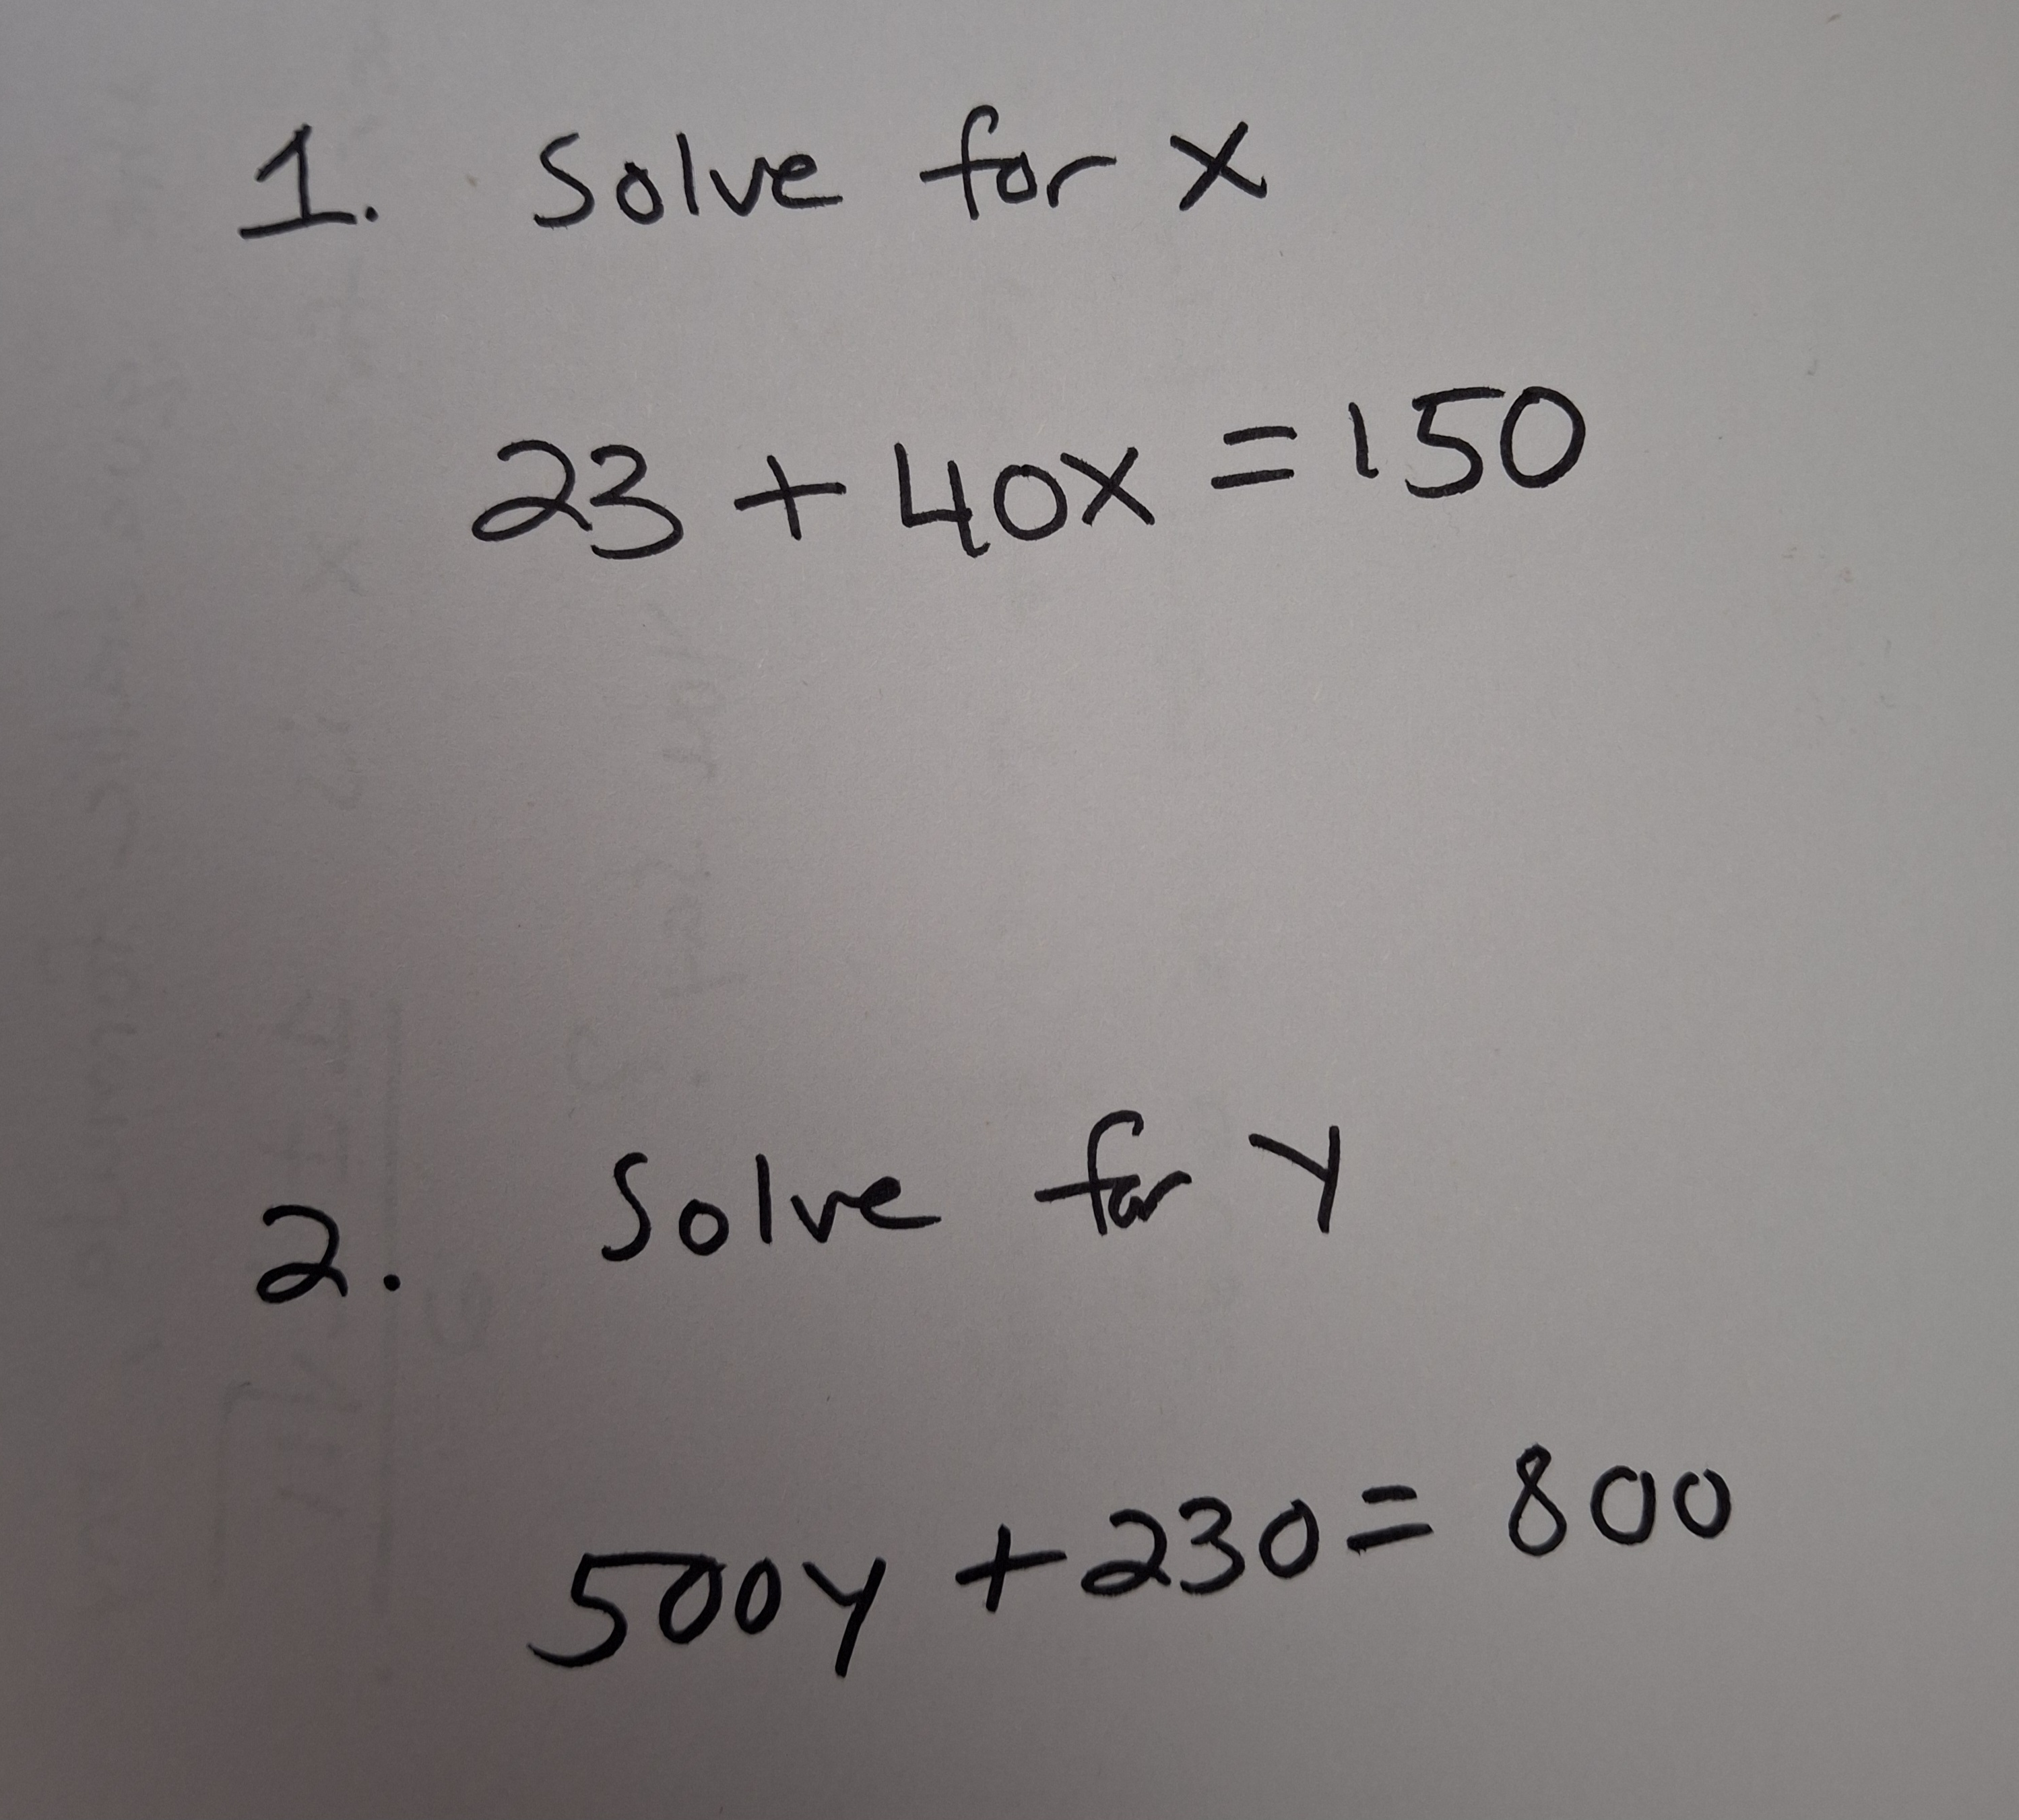 1. Solve for x
23 + 40x = 150
2. Solve for y
500y + 230 = 800